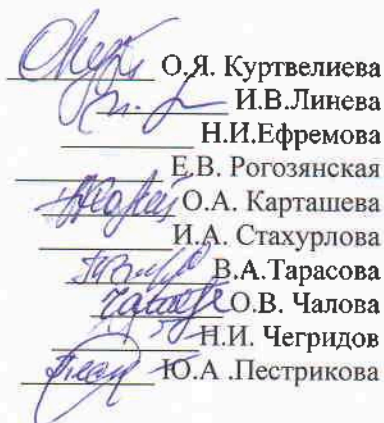 О.Я. Куртвелиева
И.В.Линева
Н.И.Ефремова
Е.В. Рогозянская
О.А. Карташева
И.А. Стахурлова
В.А.Тарасова
О.В. Чалова
Н.И. Чегридов
Ю.А .Пестрикова